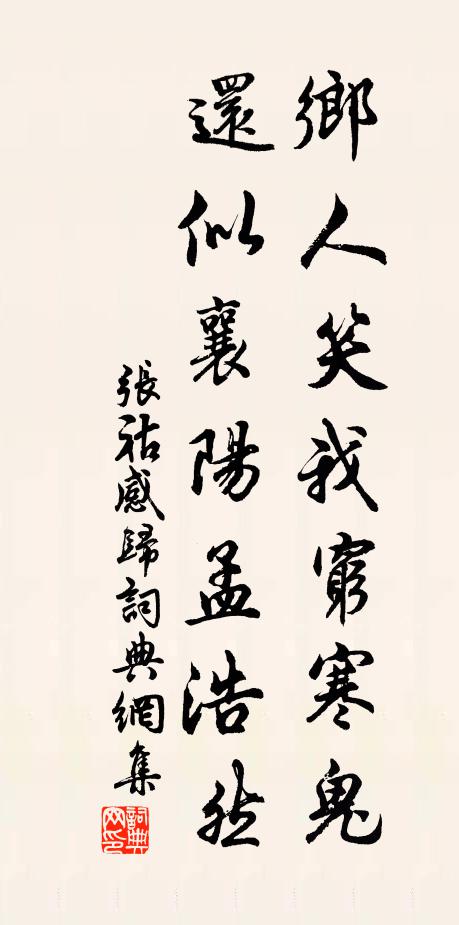 鄉人笑我窮寒鬼
還似襄陽孟浩然
張祜感歸詞典網集
詞典
网印